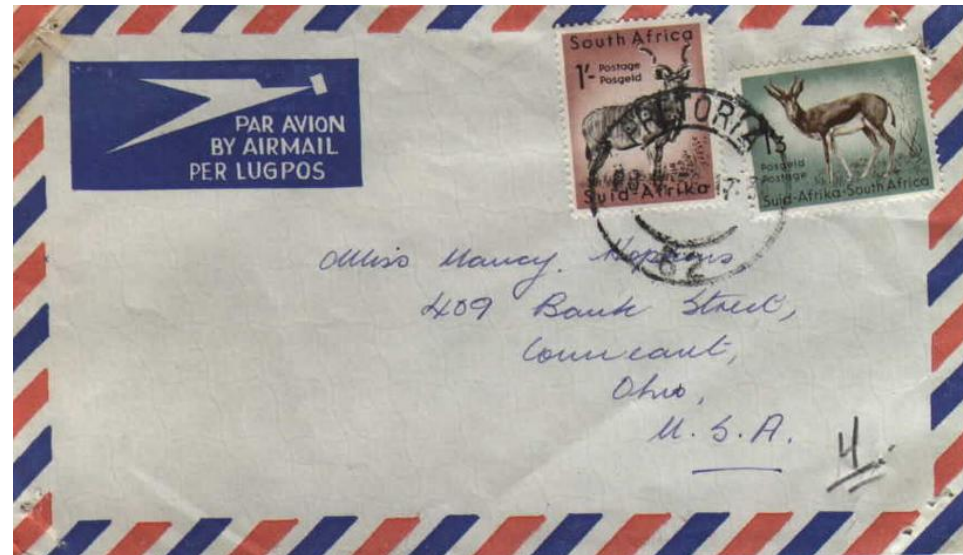 PAR AVION
BY AIRMAIL
PER LUGPOS
South Africa
1'- Postage
Posgeld
Suid-Afrika
1'3
Posgeld
Postage
Suid-Afrika·South Africa
PRETORIA
Miss Nancy. Hopkins
409 Bank Street,
Conneaut,
Ohio,
U. S. A.
4